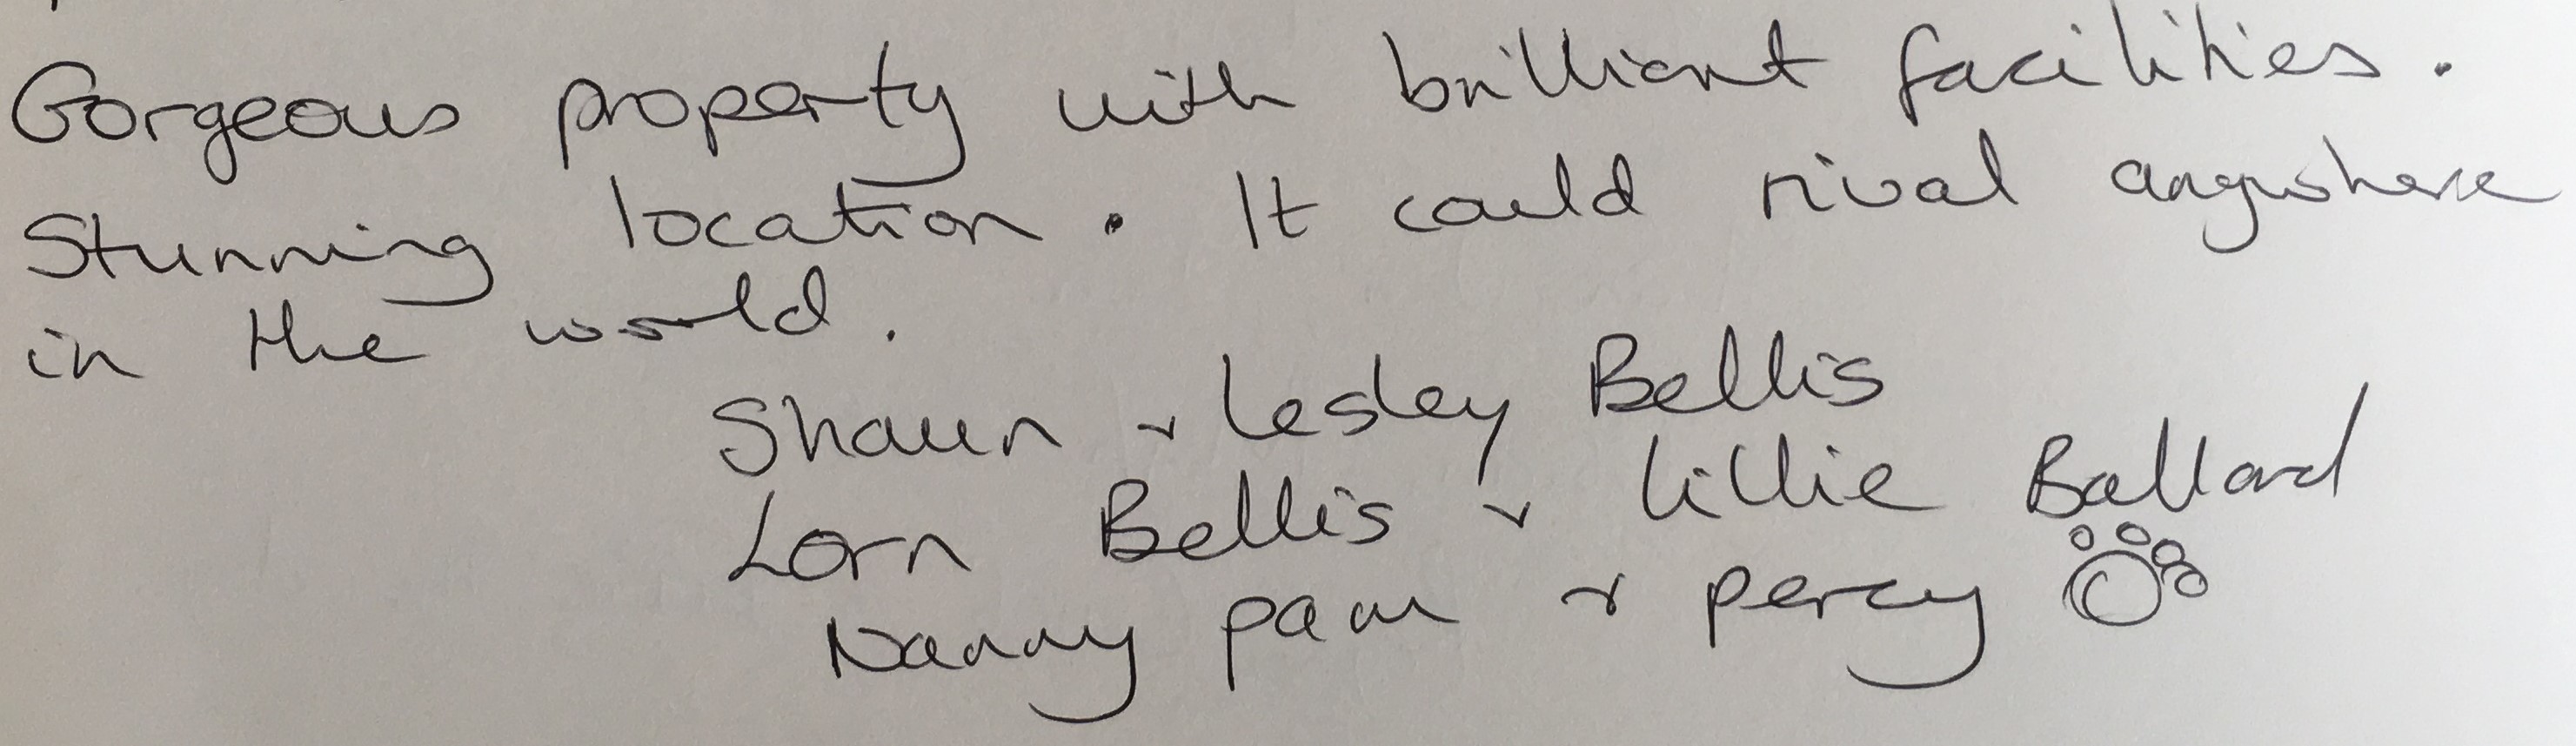 Gorgeous property with brilliant facilities.
Stunning location. It could rival anywhere
in the world.
Shaun & Lesley Bellis
Lorn Bellis & Lillie Ballard
Nanny pam & percy